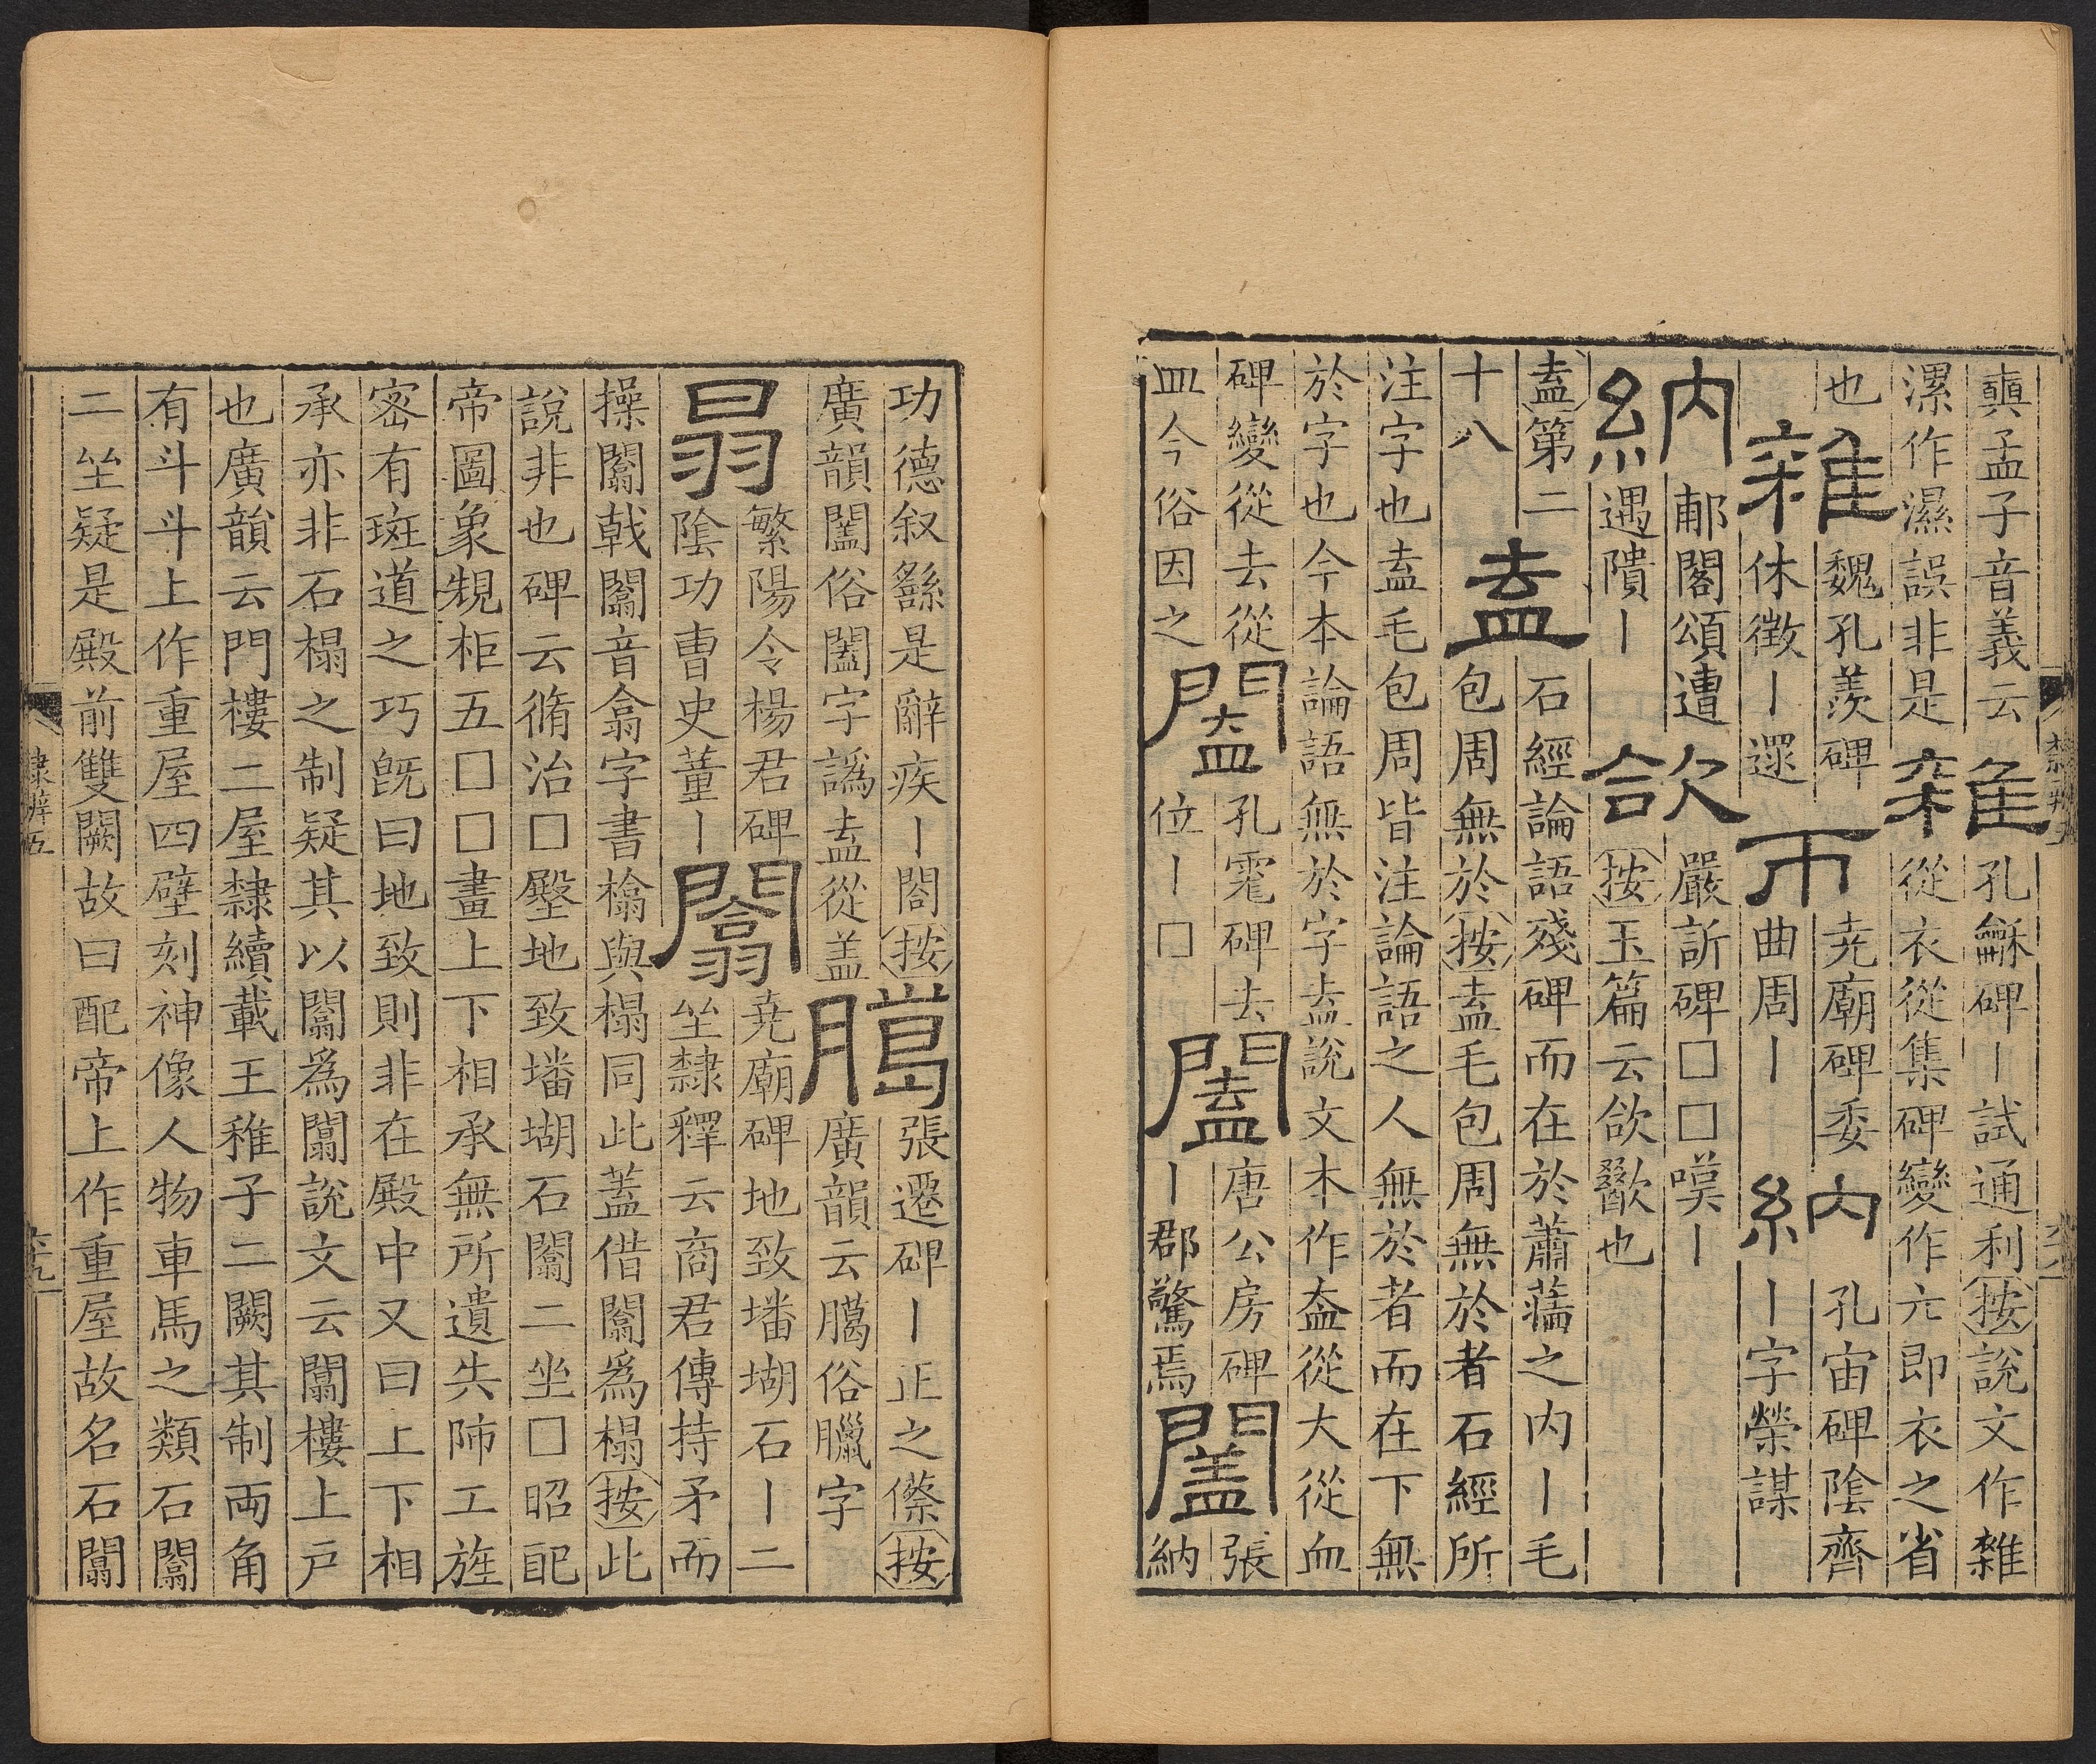 顨孟子音義云雜孔龢碑丨試通利按說文作雜
漯作濕誤非是從衣從集碑變作亠即衣之省
也雜魏孔羨碑帀堯廟碑委納孔宙碑陰齊
休徵丨還曲周丨丨字榮謀
納郙閣頌遭欱嚴訢碑□□嘆丨
遇隤丨按玉篇云欱歠也
盍第二盍石經論語殘碑而在於蕭蘠之内丨毛
十八包周無於按盍毛包周無於者石經所
注字也盍毛包周皆注論語之人無於者而在下無
於字也今本論語無於字盍說文本作盇從大從血
碑變從去從闔孔霮碑去闔唐公房碑闔張
皿今俗因之位丨□丨郡驚焉納
功德叙繇是辭疾丨閤按臈張遷碑丨正之傺按
廣韻闔俗闔字譌盍從盖廣韻云臈俗臘字
𦐇繁陽令楊君碑闟堯廟碑地致墦堋石丨二
陰功曹史董丨坐隸釋云商君傳持矛而
操闟戟闟音翕字書㩉與榻同此蓋借闟爲榻按此
說非也碑云脩治□壂地致墦堋石闟二坐□昭配
帝圖象䂓柜五□□畫上下相承無所遺失師工旌
宻有斑道之巧旣曰地致則非在殿中又曰上下相
承亦非石榻之制疑其以闟爲闒說文云闒樓上戸
也廣韻云門樓二屋隸續載王稚子二闕其制両角
有斗斗上作重屋四壁刻神像人物車馬之類石闟
二坐疑是殿前雙闕故曰配帝上作重屋故名石闒
隸辨五